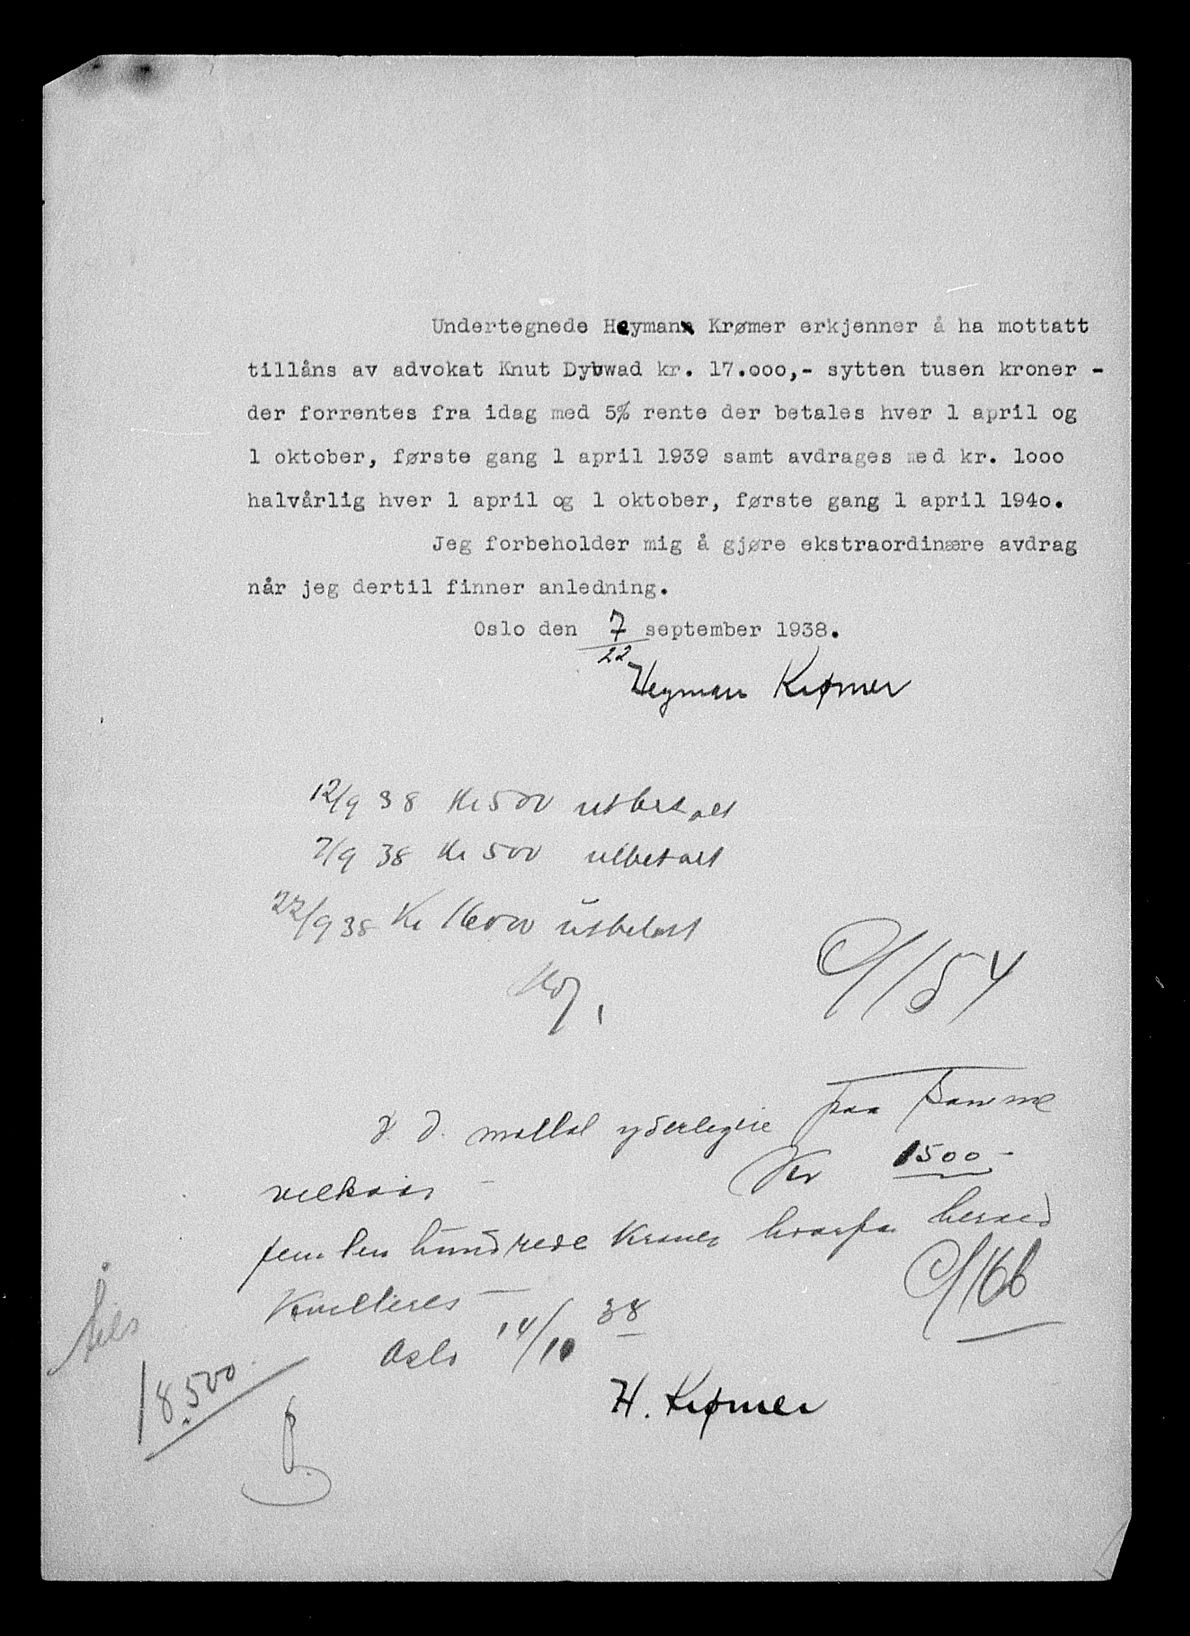 Undertegnede Heyman Krømer erkjenner å ha mottatt
tillåns av advokat Knut Dybwad kr. 17.ooo,- sytten tusen kroner -
der forrentes fra idag med 5% rente der betales hver 1 april og
1 oktober, første gang 1 april 1939 samt avdrages med kr. 1ooo
halvårlig hver 1 april og 1 oktober, første gang 1 april 194o.
Jeg forbeholder mig å gjøre ekstraordinære avdrag
når jeg dertil finner anledning.
Oslo den 7 september 1938.
22
Heyman Krømer
12/9 38 Kr 500 utbetalt
7/9 38 Kr 500 utbetalt
22/9 38 Kr 16000 utbetalt
C/154
D. D. mottat yderligere paa samme
vilkaar - Kr 1500 -
femten hundrede Kroner hvorfor herved
Kvitteres -
C/166
Oslo 14/10 38
18.500
H. Krømer